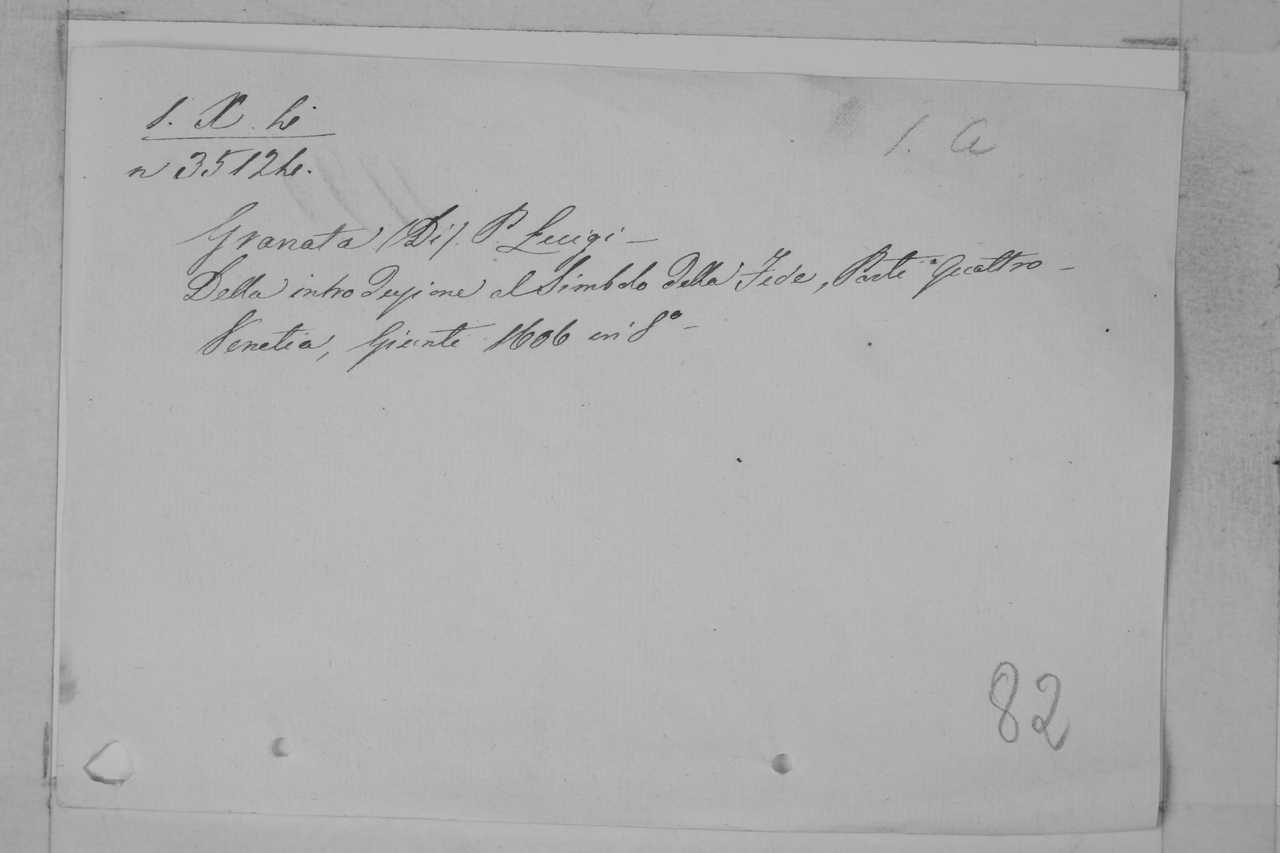 1. X. h
1. a
n 3512h.
Granata (Di). P. Luigi —
Della introduzione al Simbolo della Fede, Parte Quattro —
Venetia, Giunti 1606 in 8° —
82